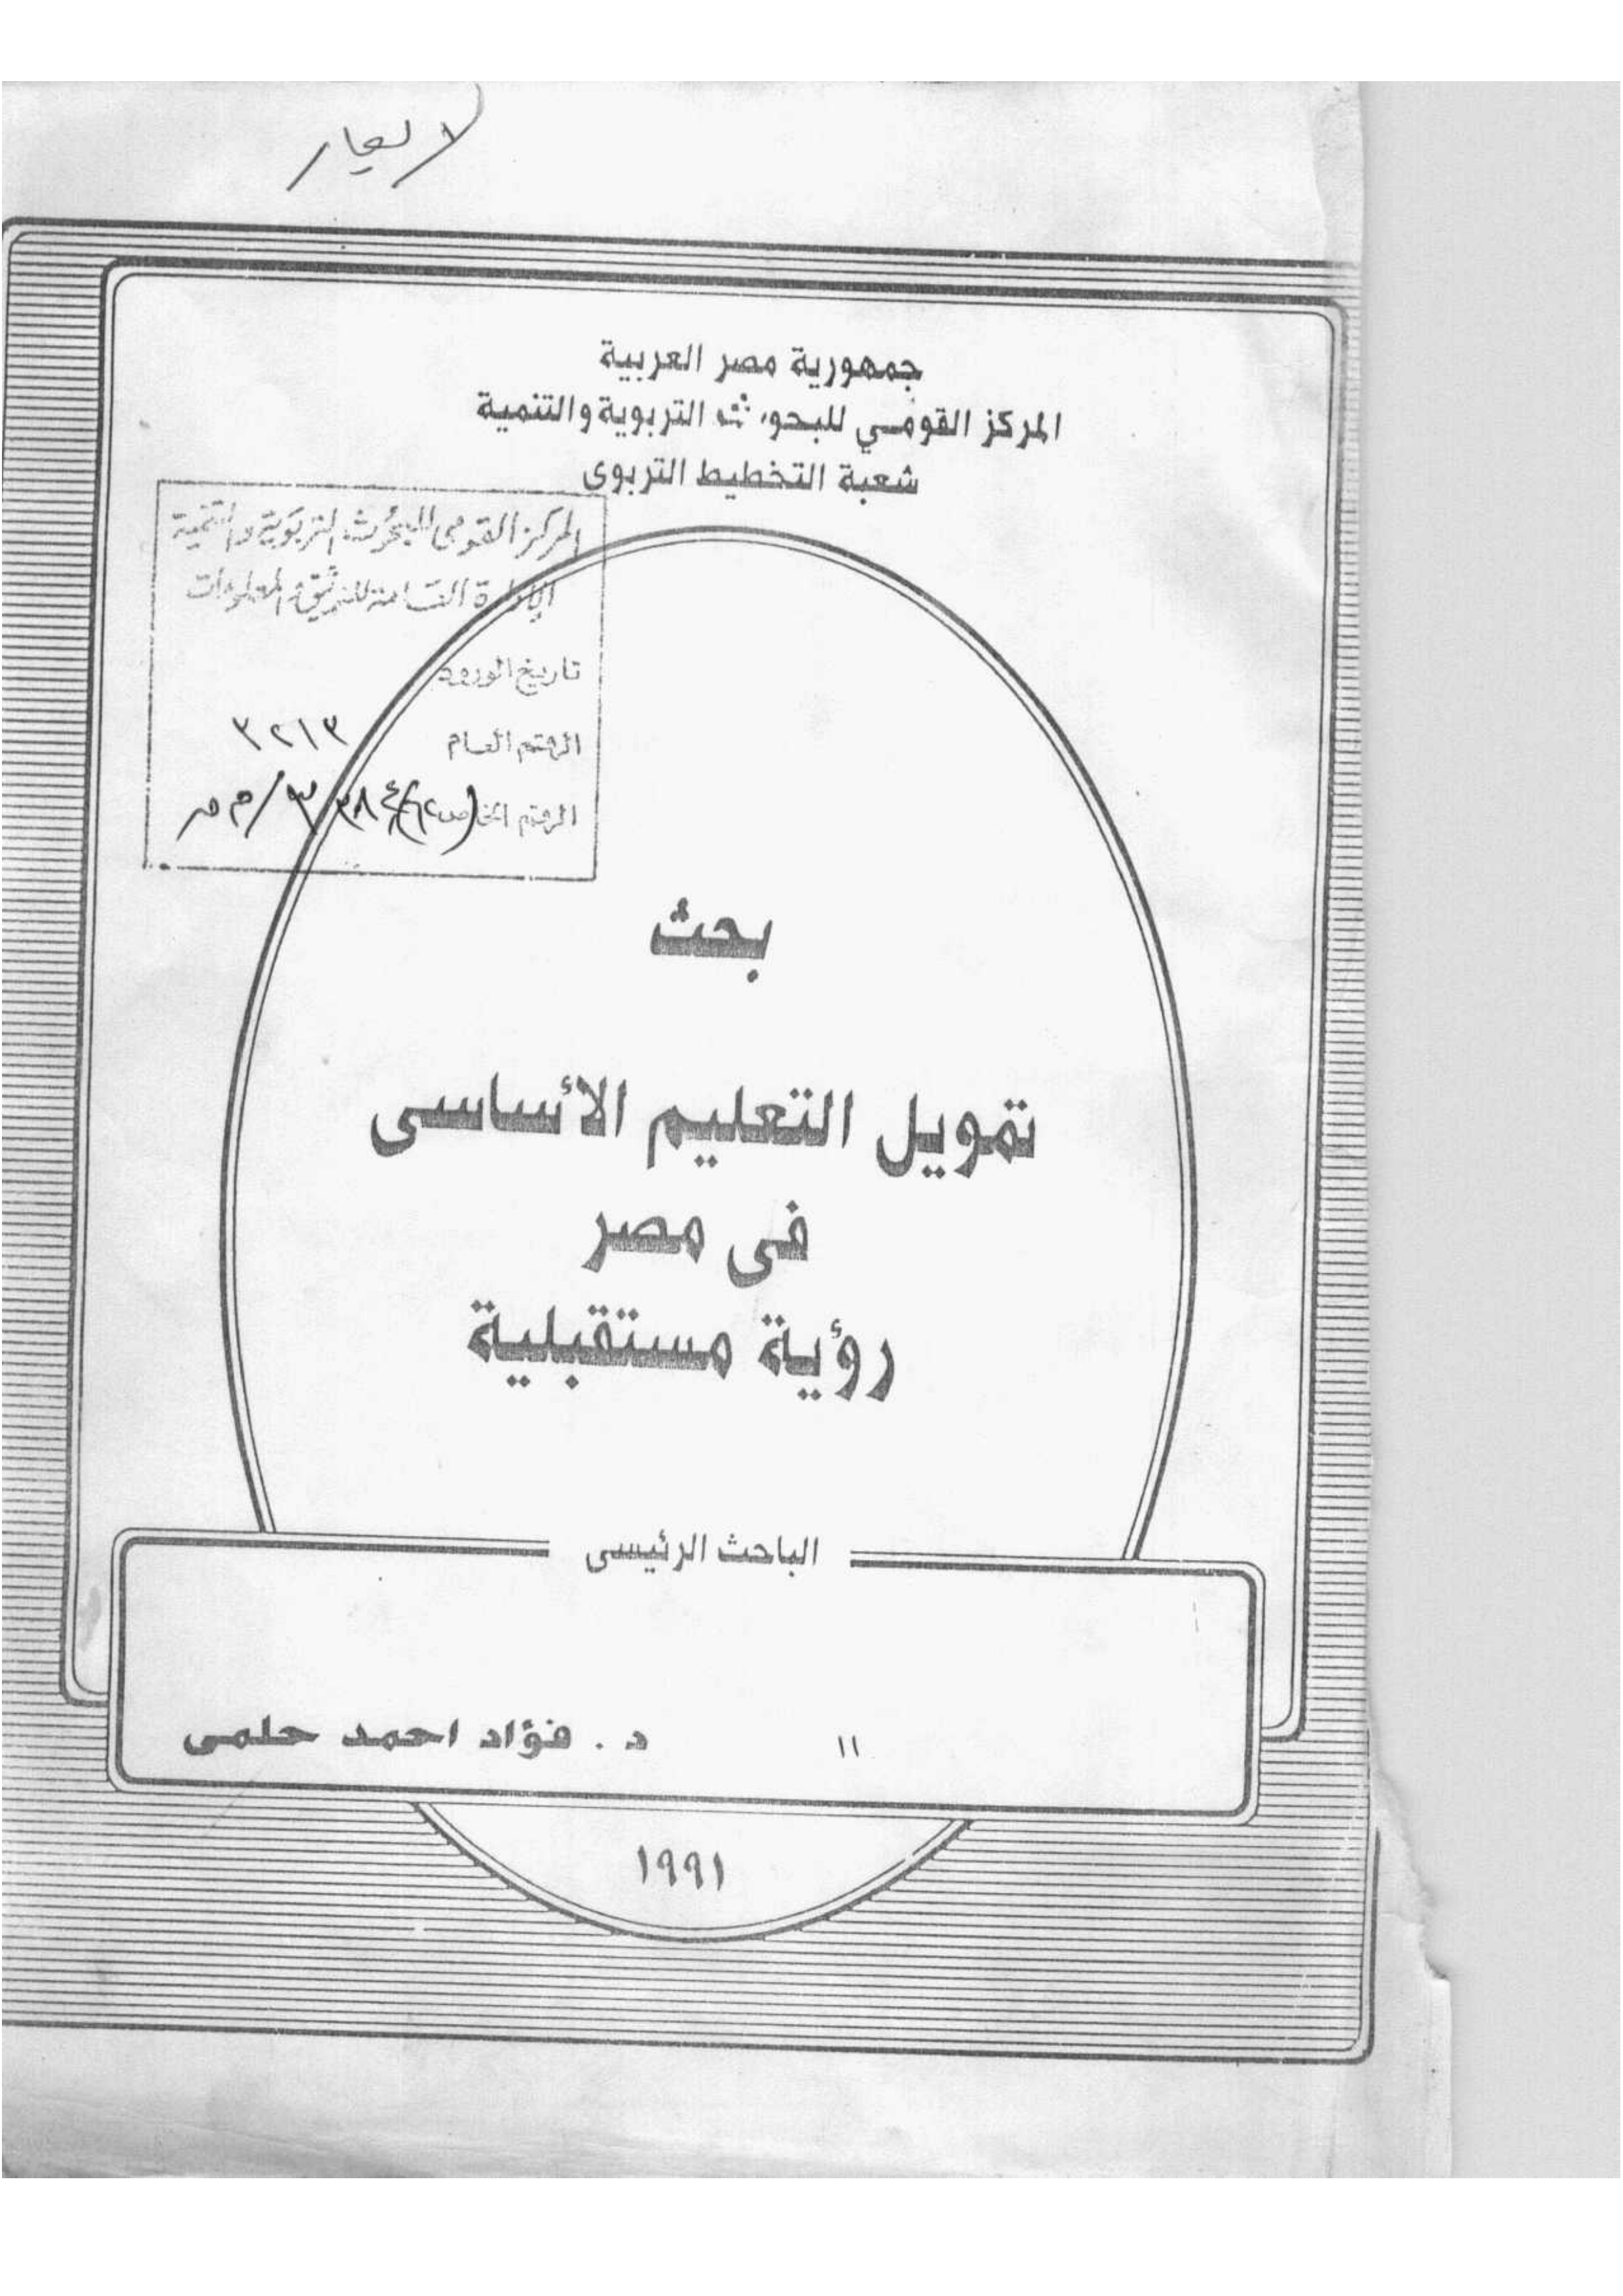 لا يعار
جمهورية مصر العربية
المركز القومي للبحوث التربوية والتنمية
شعبة التخطيط التربوى
المركز القومى للبحوث التربوية والتنمية
الإدارة العامة للتوثيق والمعلومات
تاريخ الورود
الرقم العام ٣٢١٣
الرقم الخاص
بحث
تمويل التعليم الأساسى
فى مصر
رؤية مستقبلية
الباحث الرئيسى
١١ د . فؤاد احمد حلمى
١٩٩١